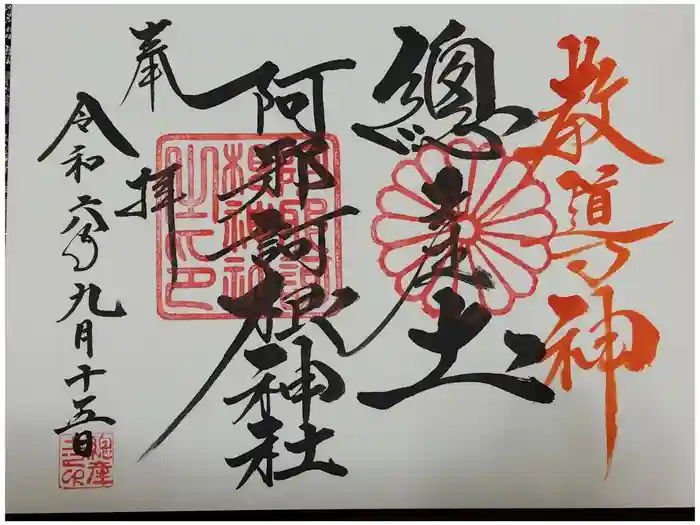 教導神
總産土
阿邪訶根神社
奉拝
令和六年九月十五日
總産
土印